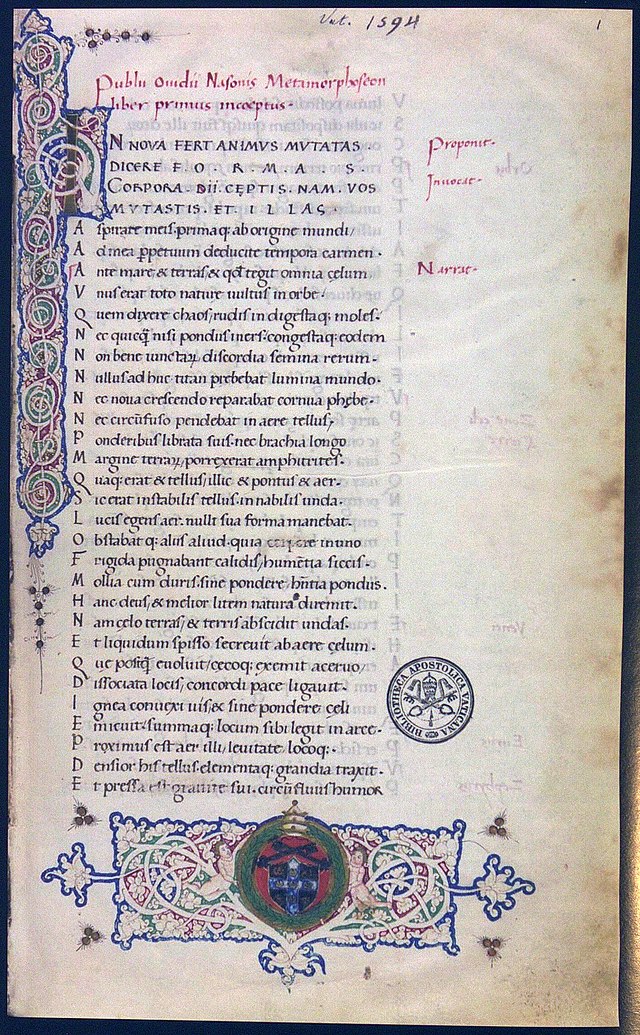 Vat. 1594
1
Publii Ovidii Nasonis Metamorphoseon
liber primus incoeptus.
IN NOVA FERT ANIMVS MVTATAS
Proponit.
DICERE FORMAS
CORPORA. DII. CĘPTIS. NAM. VOS
Invocat.
MVTASTIS. ET. ILLAS.
Aspirate meis. primaq; ab origine mundi/
Ad mea ꝑpetuum deducite tempora carmen.
Ante mare, & terras, & qđ tegit omnia cęlum
Narrat.
Vnus erat toto naturę vultus in orbe.
Quem dixere chaos, rudis indigestaq; moles.
Nec quicq̃, nisi pondus iners. congestaq; eodem
Non bene iunctaꝝ discordia semina rerum.
Nullus adhuc titan prebebat lumina mundo.
Nec noua crescendo reparabat cornua phębe.
Nec circũfuso pendebat in aere tellus,
Ponderibus librata suis. nec brachia longo
Margine terraꝝ porrexerat amphitrites.
Quaq; erat & tellus, illic & pontus & aer.
Sic erat instabilis tellus. innabilis unda.
Lucis egens aer. nulli sua forma manebat.
Obstabat q; aliis aliud. quia corpore in uno
Frigida pugnabant calidis, humẽtia siccis.
Mollia cum duris. sine pondere hñtia pondus.
Hanc deus, & melior litem natura diremit.
Nam cęlo terras, & terris abscidit undas.
Et liquidum spisso secreuit ab aere cęlum.
Quę postq̃ euoluit, cęcoq; exemit aceruo,
Dissociata locis, concordi pace ligauit.
Ignea conuexi uis, & sine pondere cęli
Emicuit. summaq; locum sibi legit in arce.
Proximus est aer illi, leuitate locoq;.
Densior his tellus. elementaq; grandia traxit.
Et pressa est grauitate sui. circũfluus humor
BIBLIOTHECA APOSTOLICA VATICANA